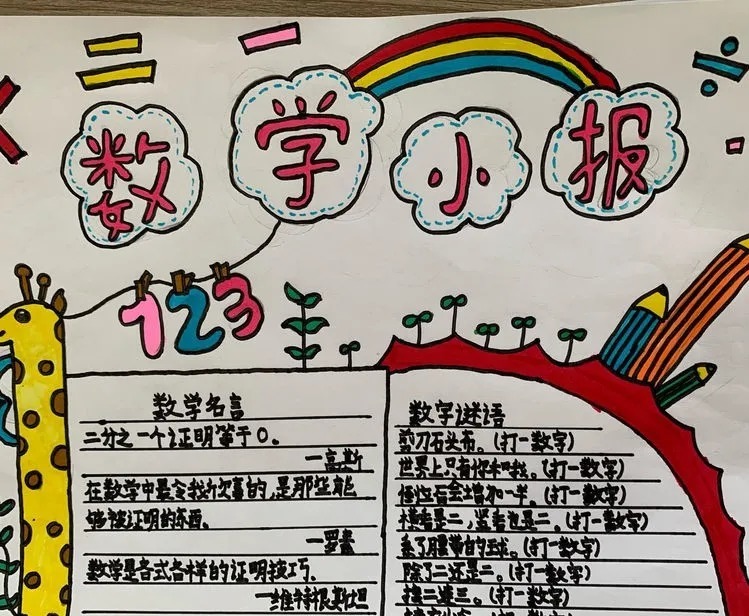 数学小报
123
数学名言
二分之一个证明等于0。
—高斯
在数学中最令我欣喜的，是那些能
够被证明的东西。
—罗素
数学是各式各样的证明技巧。
—维特根斯坦
数字谜语
剪刀石头布。(打一数字)
世界上只有你和我。(打一数字)
后会增加一半。(打一数字)
横看是二，竖看也是二。(打一数字)
系了腰带的球。(打一数字)
除了二还是二。(打一数字)
接二连三。(打一数字)